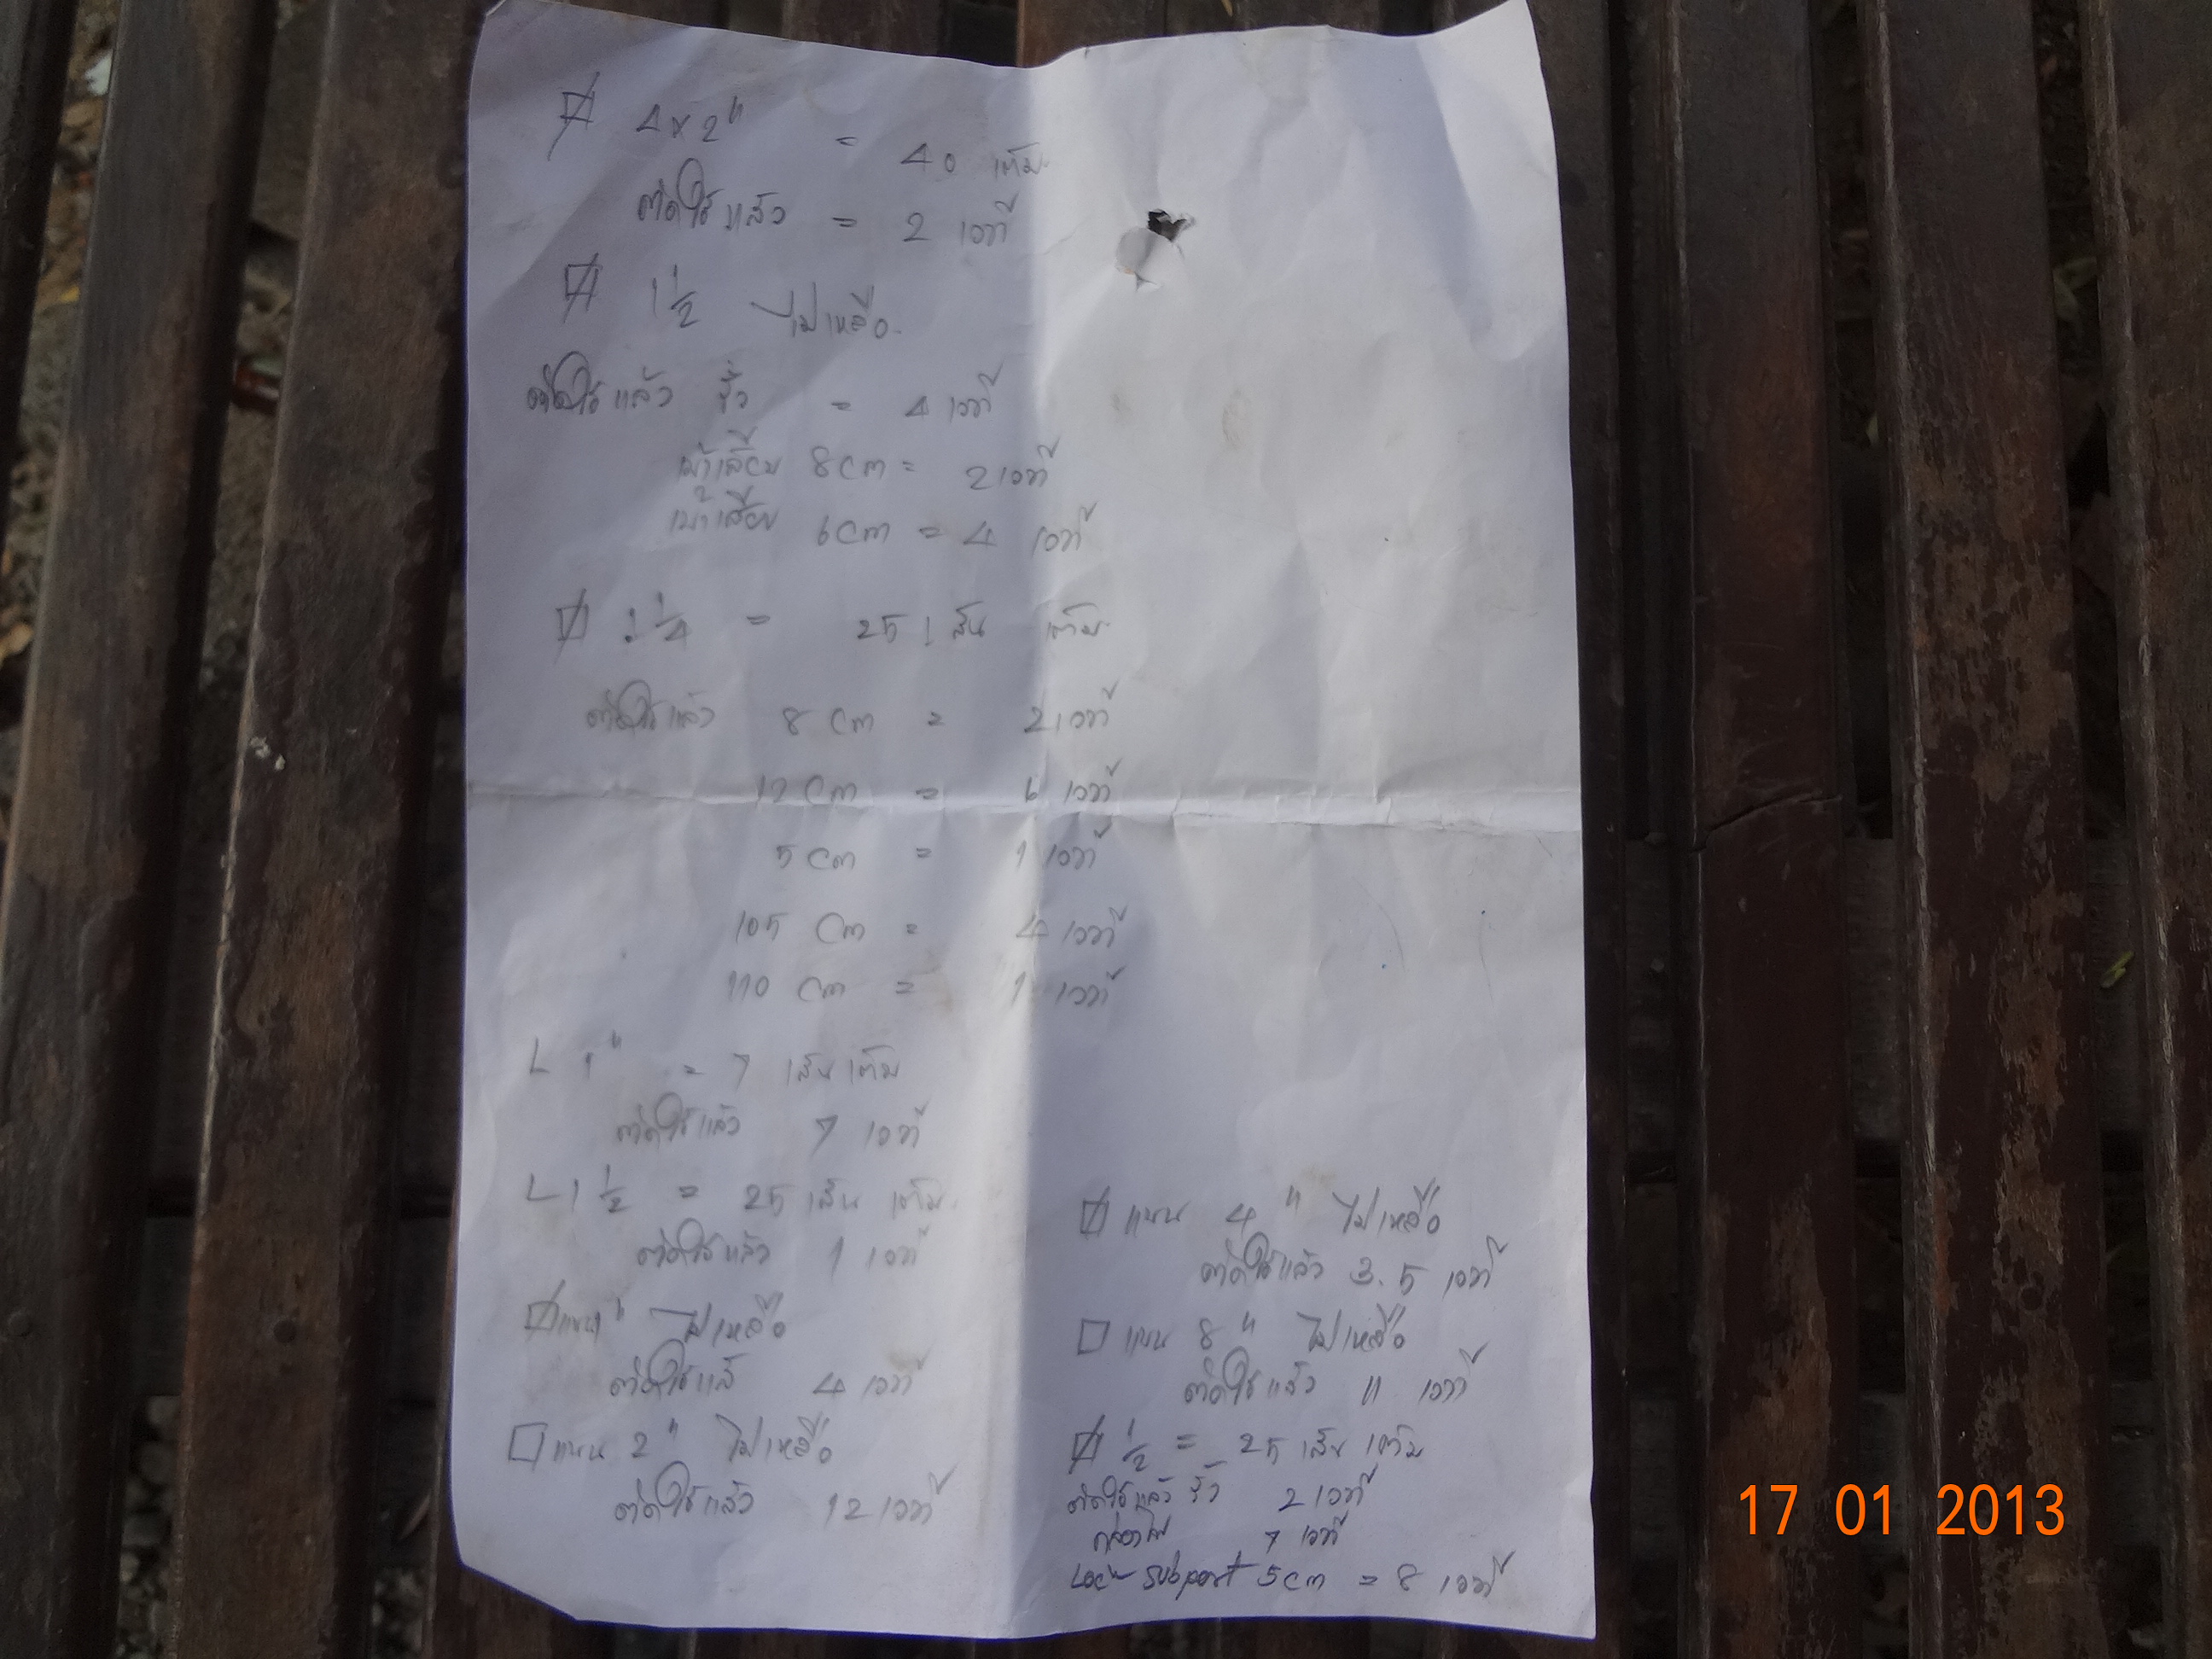 4x2" = 40 เต็ม
ตัดใช้แล้ว = 2 เวที
1 1/2 ไม่เหลือ
ตัดใช้แล้ว รั้ว = 4 เวที
8 cm = 2 เวที
6 cm = 4 เวที
1 1/4 = 25 เส้น เต็ม
ตัดใช้แล้ว 8 cm = 2 เวที
12 cm = 6 เวที
5 cm = 1 เวที
105 cm = 4 เวที
110 cm = 1 เวที
L 1" = 7 เส้น เต็ม
ตัดใช้แล้ว 7 เวที
L 1 1/2 = 25 เส้น เต็ม
ตัดใช้แล้ว 1 เวที
แบน 1" ไม่เหลือ
ตัดใช้แล้ 4 เวที
แบน 2" ไม่เหลือ
ตัดใช้แล้ว 12 เวที
แบน 4" ไม่เหลือ
ตัดใช้แล้ว 3.5 เวที
แบน 8" ไม่เหลือ
ตัดใช้แล้ว 11 เวที
1/2 = 25 เส้น เต็ม
ตัดใช้แล้ว รั้ว 2 เวที
กล่องไฟ 7 เวที
Lock Subport 5cm = 8 เวที
17 01 2013